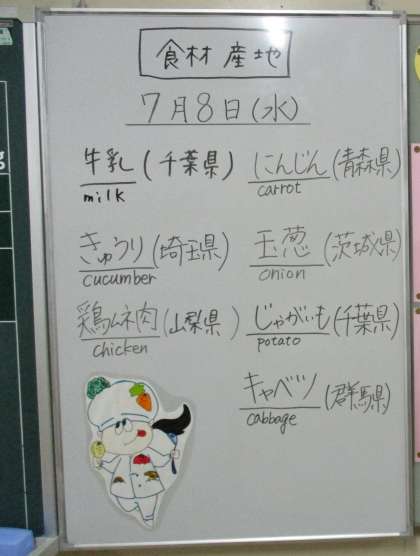 食材産地
7月8日(水)
牛乳(千葉県)
milk
にんじん(青森県)
carrot
きゅうり(埼玉県)
cucumber
玉葱(茨城県)
onion
鶏ムネ肉(山梨県)
chicken
じゃがいも(千葉県)
potato
キャベツ(群馬県)
cabbage